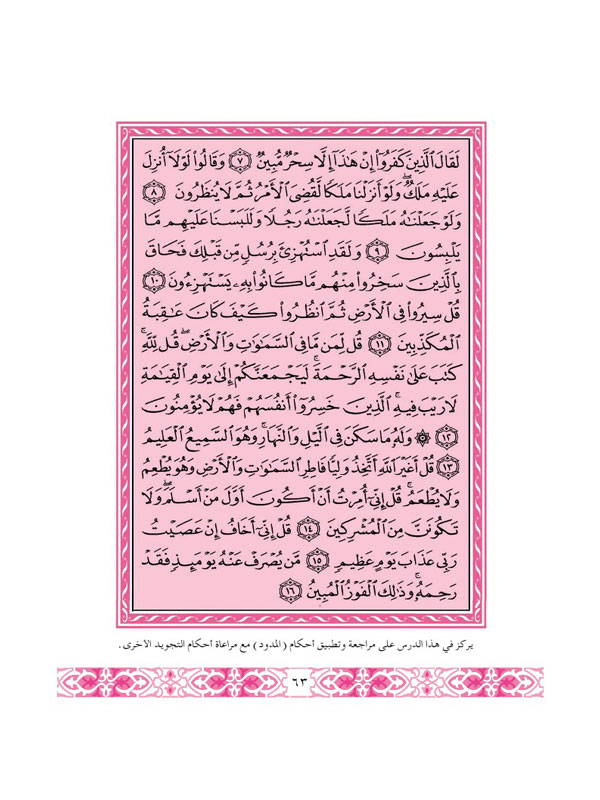 لَقَالَ ٱلَّذِينَ كَفَرُوٓا۟ إِنْ هَٰذَآ إِلَّا سِحْرٌ مُّبِينٌ ٧ وَقَالُوا۟ لَوْلَآ أُنزِلَ
عَلَيْهِ مَلَكٌ ۖ وَلَوْ أَنزَلْنَا مَلَكًا لَّقُضِىَ ٱلْأَمْرُ ثُمَّ لَا يُنظَرُونَ ٨
وَلَوْ جَعَلْنَٰهُ مَلَكًا لَّجَعَلْنَٰهُ رَجُلًا وَلَلَبَسْنَا عَلَيْهِم مَّا
يَلْبِسُونَ ٩ وَلَقَدِ ٱسْتُهْزِئَ بِرُسُلٍ مِّن قَبْلِكَ فَحَاقَ
بِٱلَّذِينَ سَخِرُوا۟ مِنْهُم مَّا كَانُوا۟ بِهِۦ يَسْتَهْزِءُونَ ١٠
قُلْ سِيرُوا۟ فِى ٱلْأَرْضِ ثُمَّ ٱنظُرُوا۟ كَيْفَ كَانَ عَٰقِبَةُ
ٱلْمُكَذِّبِينَ ١١ قُل لِّمَن مَّا فِى ٱلسَّمَٰوَٰتِ وَٱلْأَرْضِ ۖ قُل لِّلَّهِ ۚ
كَتَبَ عَلَىٰ نَفْسِهِ ٱلرَّحْمَةَ ۚ لَيَجْمَعَنَّكُمْ إِلَىٰ يَوْمِ ٱلْقِيَٰمَةِ
لَا رَيْبَ فِيهِ ۚ ٱلَّذِينَ خَسِرُوٓا۟ أَنفُسَهُمْ فَهُمْ لَا يُؤْمِنُونَ
١٢ ۞ وَلَهُۥ مَا سَكَنَ فِى ٱلَّيْلِ وَٱلنَّهَارِ ۚ وَهُوَ ٱلسَّمِيعُ ٱلْعَلِيمُ
١٣ قُلْ أَغَيْرَ ٱللَّهِ أَتَّخِذُ وَلِيًّا فَاطِرِ ٱلسَّمَٰوَٰتِ وَٱلْأَرْضِ وَهُوَ يُطْعِمُ
وَلَا يُطْعَمُ ۗ قُلْ إِنِّىٓ أُمِرْتُ أَنْ أَكُونَ أَوَّلَ مَنْ أَسْلَمَ ۖ وَلَا
تَكُونَنَّ مِنَ ٱلْمُشْرِكِينَ ١٤ قُلْ إِنِّىٓ أَخَافُ إِنْ عَصَيْتُ
رَبِّى عَذَابَ يَوْمٍ عَظِيمٍ ١٥ مَّن يُصْرَفْ عَنْهُ يَوْمَئِذٍ فَقَدْ
رَحِمَهُۥ ۚ وَذَٰلِكَ ٱلْفَوْزُ ٱلْمُبِينُ ١٦
يركز في هذا الدرس على مراجعة وتطبيق أحكام ( المدود ) مع مراعاة أحكام التجويد الأخرى .
٦٣